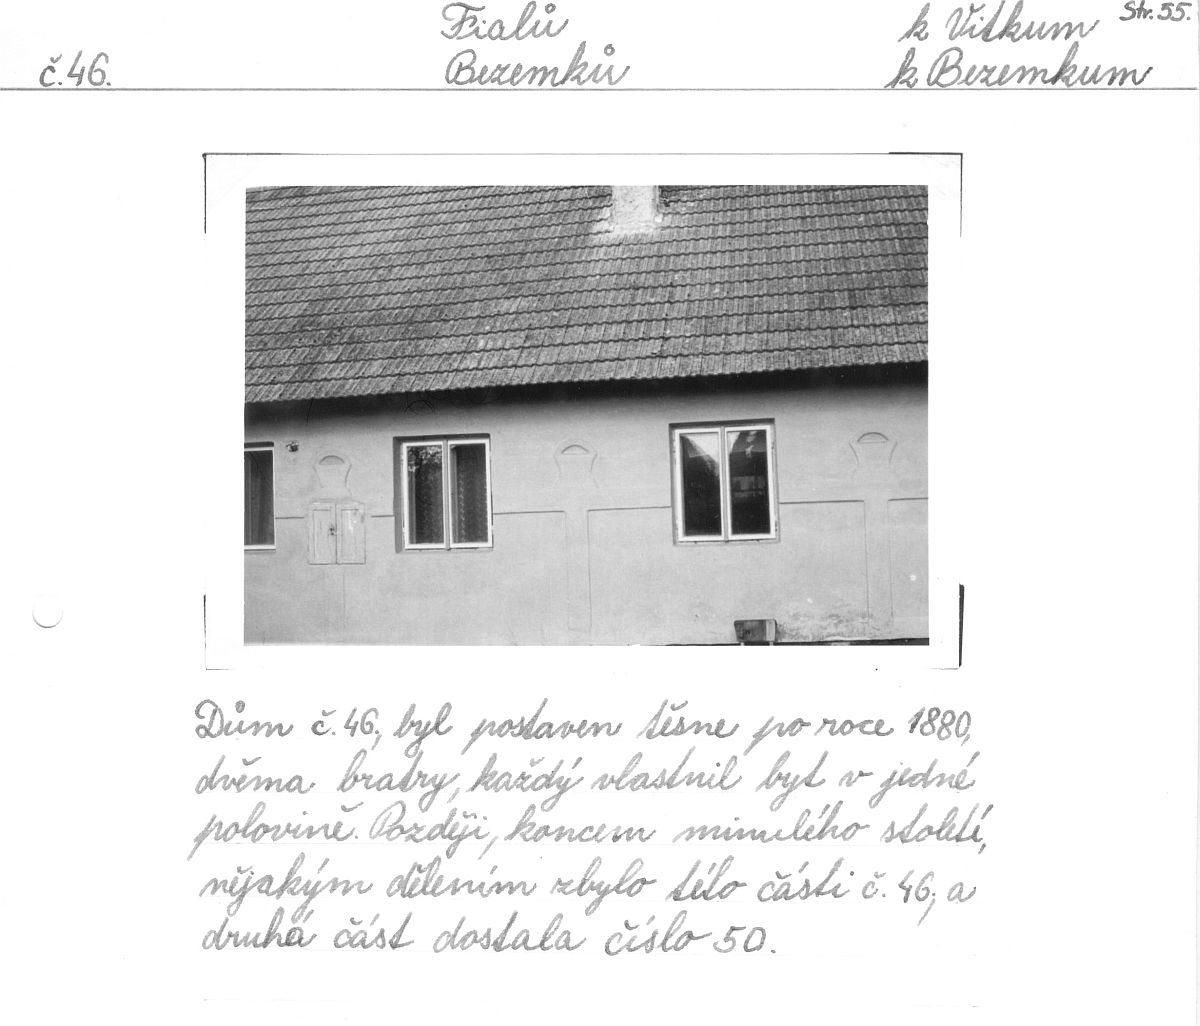 Fialů k Vítkum Str. 55.
č. 46. Bezemků k Bezemkum
Dům č. 46., byl postaven těsne po roce 1880,
dvěma bratry, každý vlastnil byt v jedné
polovině. Později, koncem minulého století,
nějakým dělením zbylo této části č. 46., a
druhá část dostala číslo 50.